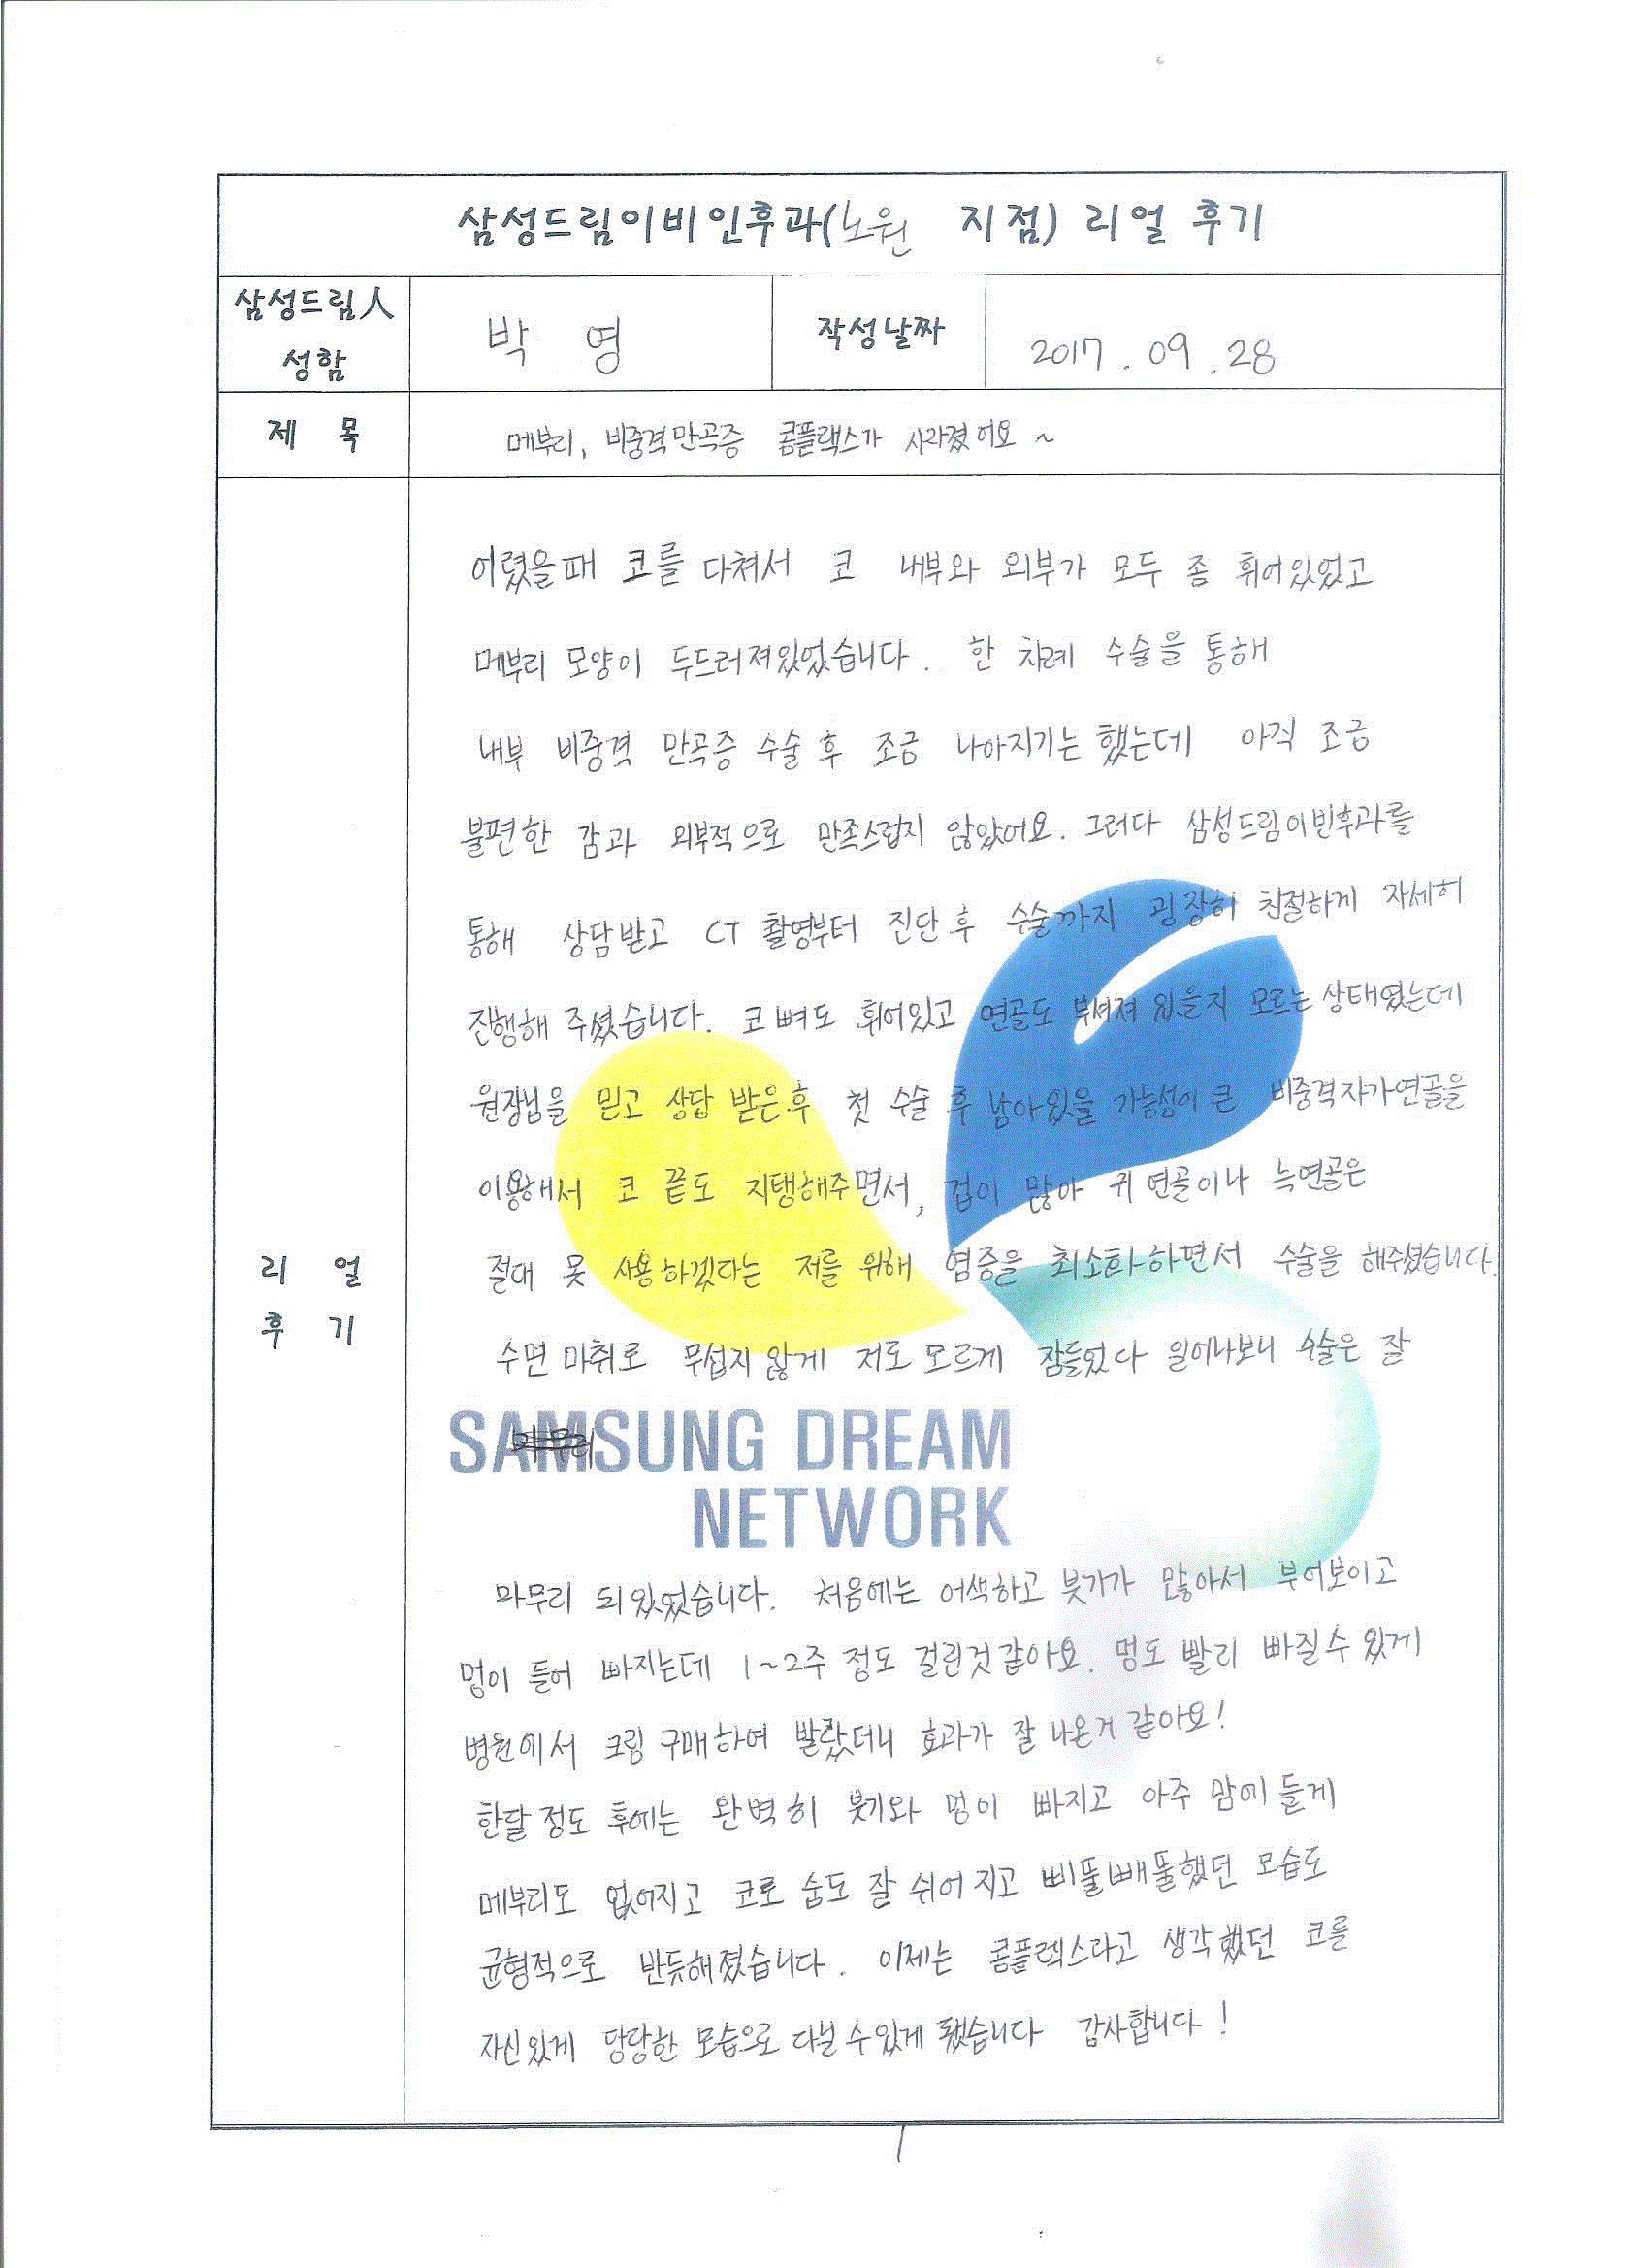 삼성드림이비인후과(노원 지점) 리얼 후기
삼성드림人
성함
박 영
작성날짜
2017. 09. 28
제 목
메부리, 비중격만곡증 콤플랙스가 사라졌어요~
어렸을때 코를 다쳐서 코 내부와 외부가 모두 좀 휘어있었고
메부리 모양이 두드러져있었습니다. 한 차례 수술을 통해
내부 비중격 만곡증 수술 후 조금 나아지기는 했는데 아직 조금
불편한 감과 외부적으로 만족스럽지 않았어요. 그러다 삼성드림이빈후과를
통해 상담받고 CT 촬영부터 진단 후 수술까지 굉장히 친절하게 자세히
진행해 주셨습니다. 코 뼈도 휘어있고 연골도 부셔져 있을지 모르는 상태였는데
원장님을 믿고 상담 받은후 첫 수술 후 남아있을 가능성이 큰 비중격자가연골을
이용해서 코 끝도 지탱해주면서, 겁이 많아 귀 연골이나 늑연골은
절대 못 사용하겠다는 저를 위해 염증을 최소화하면서 수술을 해주셨습니다.
수면 마취로 무섭지 않게 저도 모르게 잠들었다 일어나보니 수술은 잘
SAMSUNG DREAM
NETWORK
마무리 되있었습니다. 처음에는 어색하고 붓기가 많아서 부어보이고
멍이 들어 빠지는데 1~2주 정도 걸린것같아요. 멍도 빨리 빠질수 있게
병원에서 크림 구매하여 발랐더니 효과가 잘 나온거 같아요!
한달 정도 후에는 완벽히 붓기와 멍이 빠지고 아주 맘에 들게
메부리도 없어지고 코로 숨도 잘 쉬어 지고 삐뚤빼뚤했던 모습도
균형적으로 반듯해졌습니다. 이제는 콤플렉스라고 생각했던 코를
자신있게 당당한 모습으로 다닐 수있게 됐습니다 감사합니다!
리 얼
후 기